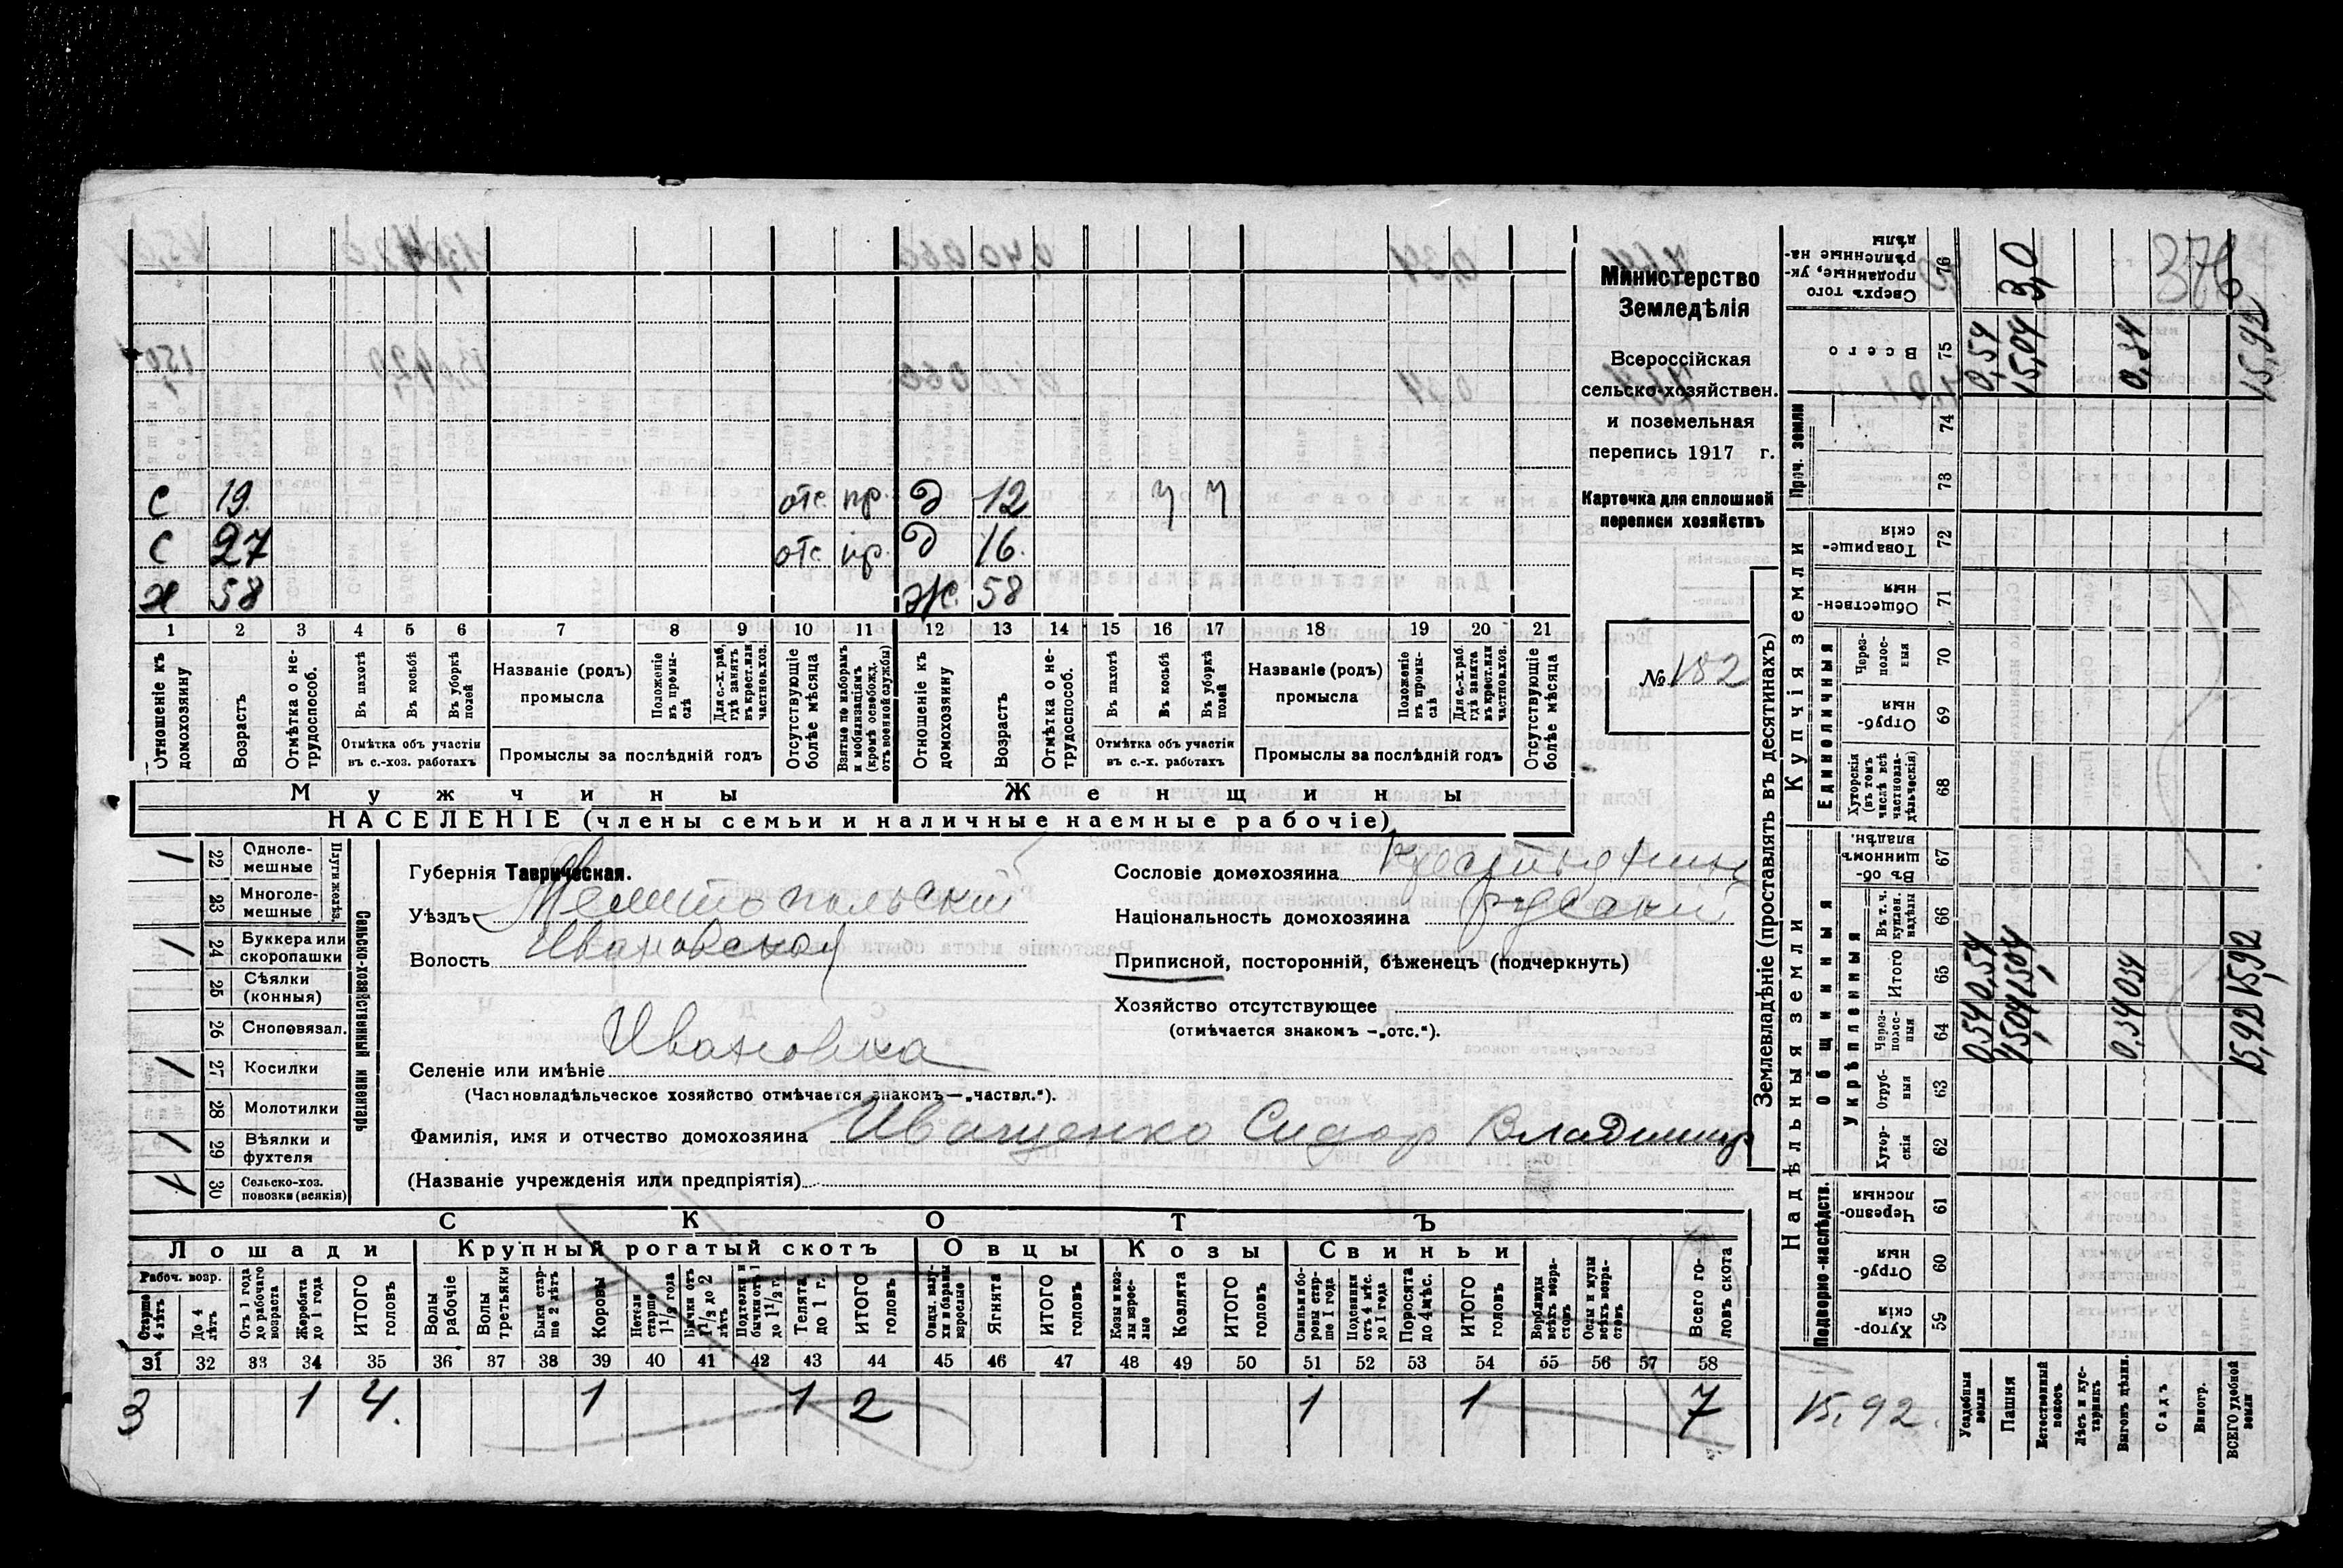 Министерство
Земледѣлія
Всероссійская
сельско-хозяйствен.
и поземельная
перепись 1917 г.
Карточка для сплошной
переписи хозяйствъ
№ 182
с 19 отс. пр. д 12 у у
с 27 отс пр. д 16.
х 58 Ж. 58
1 2 3 4 5 6 7 8 9 10 11 12 13 14 15 16 17 18 19 20 21
Отношеніе къ домохозяину
Возрастъ
Отмѣтка о не-трудоспособ.
Въ пахотѣ
Въ косьбѣ
Въ уборкѣ полей
Отмѣтка объ участіи въ с.-хоз. работахъ
Названіе (родъ) промысла
Положеніе въ промы-слѣ
Для с.-х. раб. гдѣ занятъ въ крест. или частнов. хоз.
Промыслы за послѣдній годъ
Отсутствующіе болѣе мѣсяца
Взятые по наборамъ и мобилизаціямъ (кромѣ освобожд. отъ военной службы)
Отношеніе къ домохозяину
Возрастъ
Отмѣтка о не-трудоспособ.
Въ пахотѣ
Въ косьбѣ
Въ уборкѣ полей
Отмѣтка объ участіи въ с.-х. работахъ
Названіе (родъ) промысла
Положеніе въ промы-слѣ
Для с.-х. раб. гдѣ занята въ крест. или частнов. хоз.
Промыслы за послѣдній годъ
Отсутствующіе болѣе мѣсяца
Мужчины Женщины
НАСЕЛЕНІЕ (члены семьи и наличные наемные рабочіе)
Сельско-хозяйственный инвентарь
Плуги желѣз.
22 Одноле-мешные 1
23 Многоле-мешные
24 Буккера или скоропашки 1
25 Сѣялки (конныя)
26 Сноповязал.
27 Косилки 1
28 Молотилки
29 Вѣялки и фухтеля 1
30 Сельско-хоз. повозки (всякія)
Губернія Таврическая.
Уѣздъ Мелитопольскій
Волость Ивановской
Селеніе или имѣніе Ивановка
(Частновладѣльческое хозяйство отмѣчается знакомъ — „частвл.“).
Фамилія, имя и отчество домохозяина Иващенко Сидор Владимир
(Названіе учрежденія или предпріятія)
Сословіе домохозяина крестьянин
Національность домохозяина русскій
Приписной, посторонній, бѣженецъ (подчеркнуть)
Хозяйство отсутствующее
(отмѣчается знакомъ — „отс.“).
СКОТЪ
Лошади Крупный рогатый скотъ Овцы Козы Свиньи
Рабоч. возр.
Старше 4 лѣтъ
До 4 лѣтъ
Отъ 1 года до рабочаго возраста
Жеребята до 1 года
ИТОГО головъ
Волы рабочіе
Волы третьяки
Быки стар-ше 2 лѣтъ
Коровы
Нетели старше 1½ года
Бычки отъ 1½ до 2 лѣтъ
Подтелки и бычки отъ 1 до 1½ г.
Телята до 1 г.
ИТОГО головъ
Овцы, валу-хи и бараны взрослые
Ягнята
ИТОГО головъ
Козы и коз-лы взрос-лые
Козлята
ИТОГО головъ
Свиньи и бо-ровы стар-ше 1 года
Подсвинки отъ 4 мѣс. до 1 года
Поросята до 4 мѣс.
ИТОГО головъ
Верблюды всѣхъ возра-стовъ
Ослы и мулы всѣхъ возра-стовъ
Всего го-ловъ скота
31 32 33 34 35 36 37 38 39 40 41 42 43 44 45 46 47 48 49 50 51 52 53 54 55 56 57 58
3 1 4. 1 1 2 1 1 7
Землевладѣніе (проставлять въ десятинахъ)
Надѣльныя земли
Подворно-наслѣдств.
Хутор-скія 59
Отруб-ныя 60
Черезпо-лосныя 61
Общинныя
Укрѣпленныя
Хутор-скія 62
Отруб-ныя 63
Через-полос-ныя 64
Итого 65
Въ т. ч. куплен. надѣлы 66
Въ об-щинномъ владѣн. 67
Купчія земли
Единоличныя
Хуторскія (въ томъ числѣ всѣ частновла-дѣльческія) 68
Отруб-ныя 69
Через-полос-ныя 70
Обществен-ныя 71
Товарище-скія 72
Проч. земли
73
74
Всего 75
Сверхъ того проданные, ук-рѣпленные на-дѣлы 76
Усадебныя земли 0,54 0,54 0,54
Пашня 15,04 15,04 15,04 3,0
Естественный покосъ
Лѣсъ и кус-тарникъ
Выгонъ цѣлин. 0,34 0,34 0,34
Садъ
Виногр.
ВСЕГО удобной земли 15,92 15,92 15,92
15,92.
376